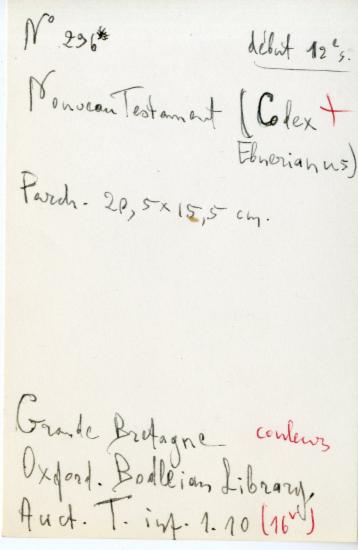 N° 296*
début 12e s.
Nouveau Testament (Codex +
Ebnerianus)
Parch. 20,5 x 15,5 cm.
Grande Bretagne couleurs
Oxford. Bodleian Library,
Auct. T. inf. 1.10 (16vo)